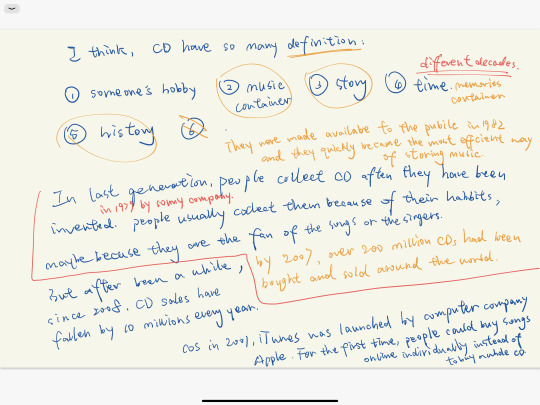 I think, CD have so many definition:
① someone's hobby
② music container
③ story
④ time.
different decades.
memories container
⑤ history
⑥
They were made availabe to the public in 1982
and they quickly became the most efficient way
of storing music.
In last generation, people collect CD after they have been
in 1979 by sonny company.
invented. people usually collect them because of their habbits,
maybe becuse they are the fan of the songs or the singers.
But after been a while,
by 2007, over 200 million CDs had been
bought and sold around the world.
since 2008, CD sales have
fallen by 10 millions every year.
cos in 2001, iTunes was launched by computer company
Apple. For the first time, people could buy songs
online individually instead of
to buy whole CD.